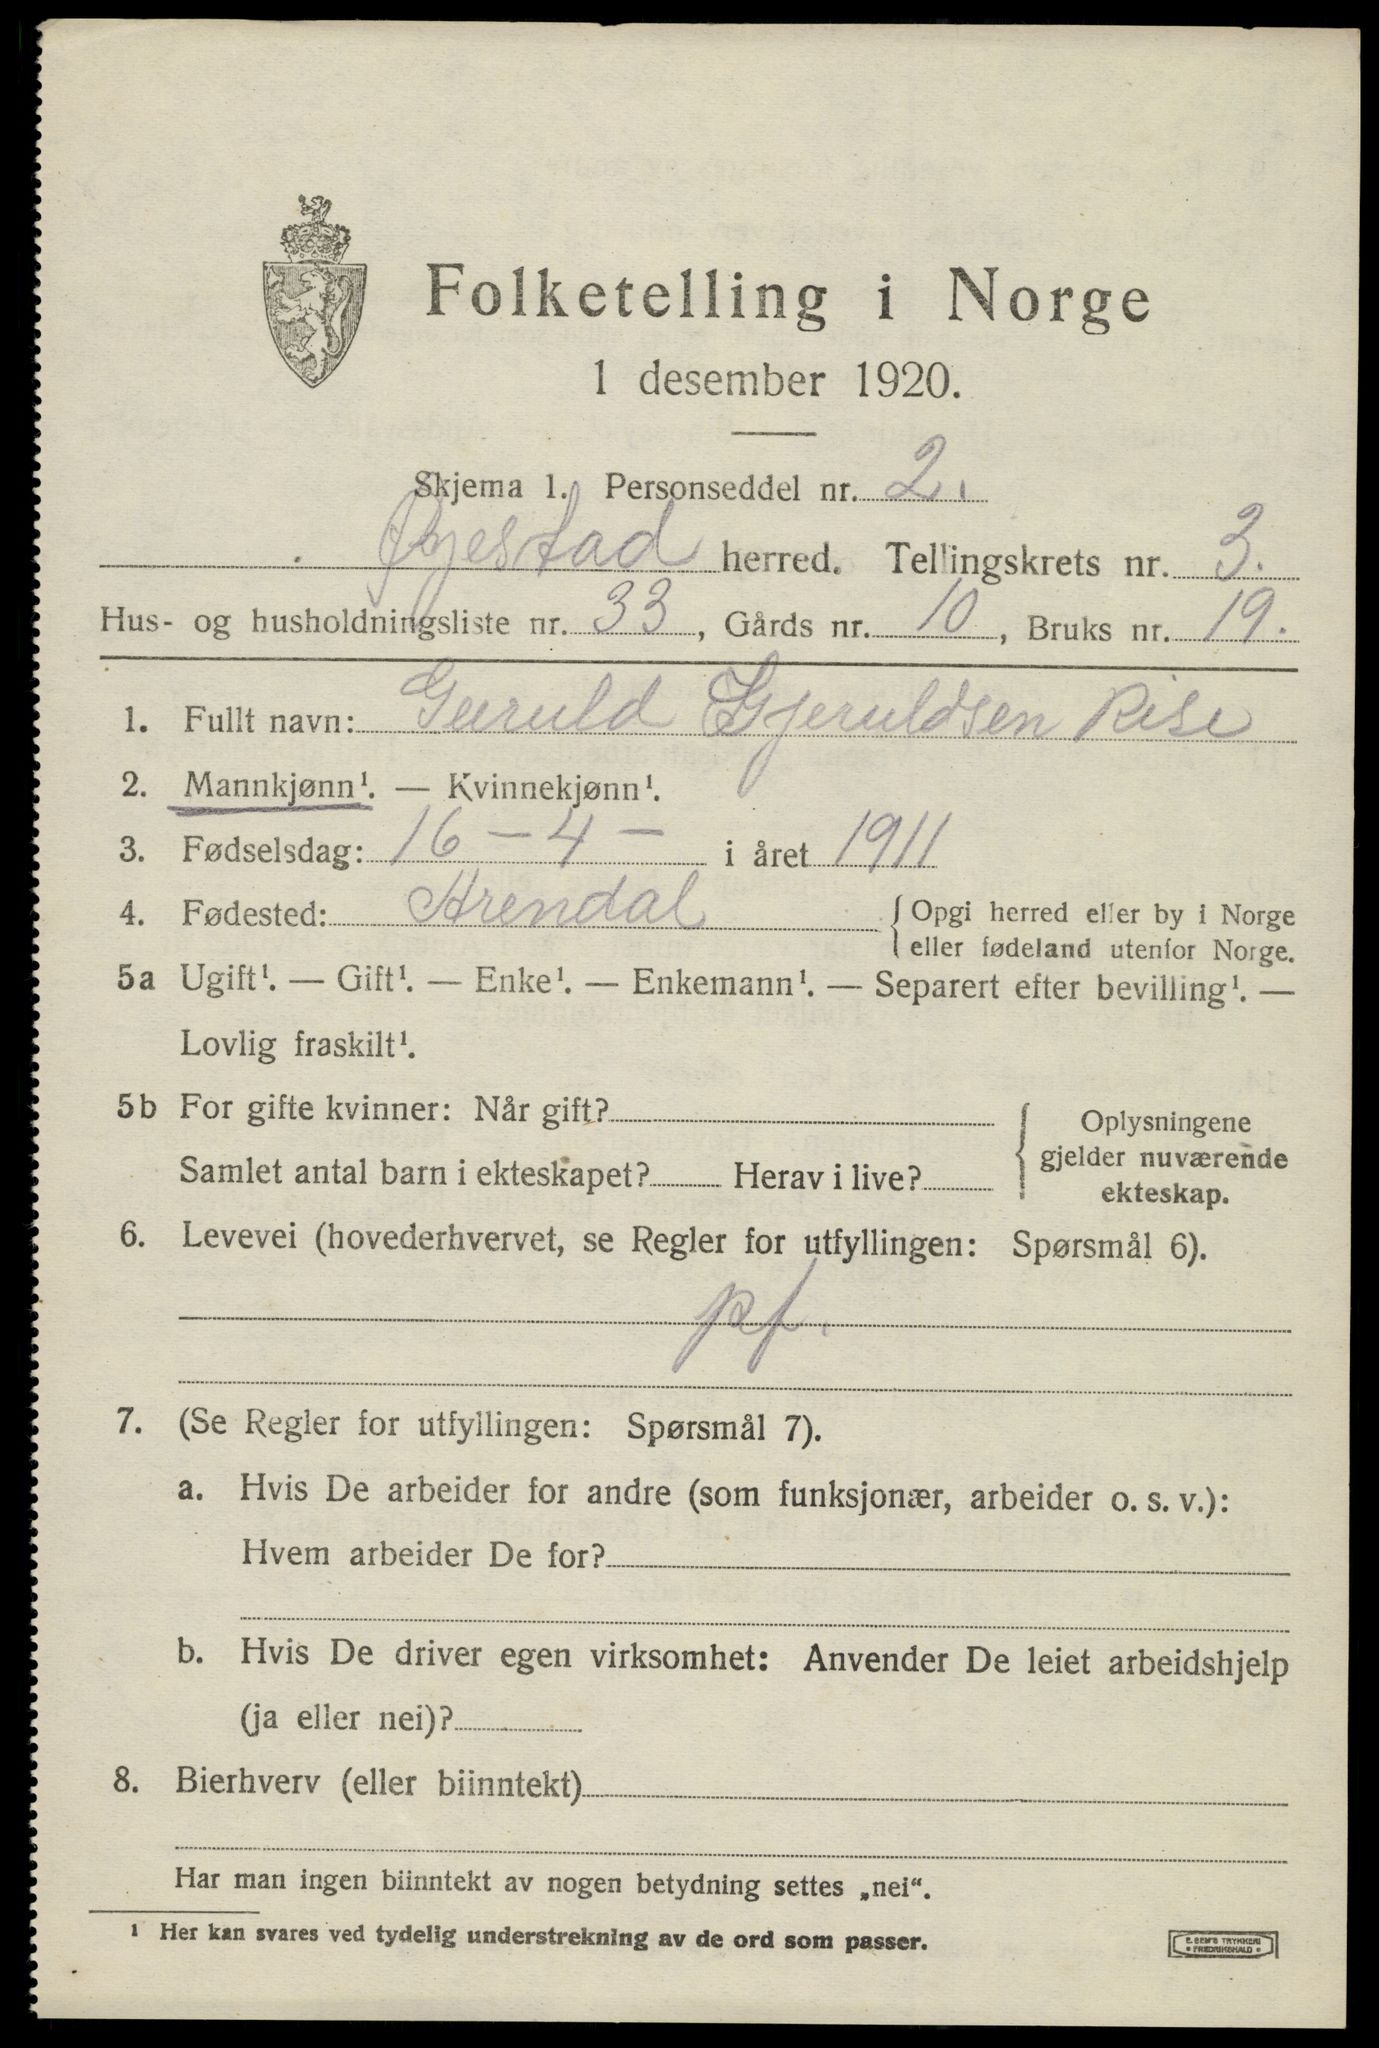 Folketelling i Norge
1 desember 1920.
Skjema 1. Personseddel nr. 2.
Øyestad herred. Tellingskrets nr. 3.
Hus- og husholdningsliste nr. 33, Gårds nr. 10, Bruks nr. 19.
1. Fullt navn: Gjeruld Gjeruldsen Rise
2. Mannkjønn¹. — Kvinnekjønn¹.
3. Fødselsdag: 16 - 4 - i året 1911
4. Fødested: Arendal { Opgi herred eller by i Norge
eller fødeland utenfor Norge.
5a Ugift¹. — Gift¹. — Enke¹. — Enkemann¹. — Separert efter bevilling¹. —
Lovlig fraskilt¹.
5b For gifte kvinner: Når gift? { Oplysningene
gjelder nuværende
Samlet antal barn i ekteskapet? Herav i live?
ekteskap.
6. Levevei (hovederhvervet, se Regler for utfyllingen: Spørsmål 6).
pf.
7. (Se Regler for utfyllingen: Spørsmål 7).
a. Hvis De arbeider for andre (som funksjonær, arbeider o. s. v.):
Hvem arbeider De for?
b. Hvis De driver egen virksomhet: Anvender De leiet arbeidshjelp
(ja eller nei)?
8. Bierhverv (eller biinntekt)
Har man ingen biinntekt av nogen betydning settes „nei“.
¹ Her kan svares ved tydelig understrekning av de ord som passer.
E. SEM'S TRYKKERI
• FREDRIKSHALD •